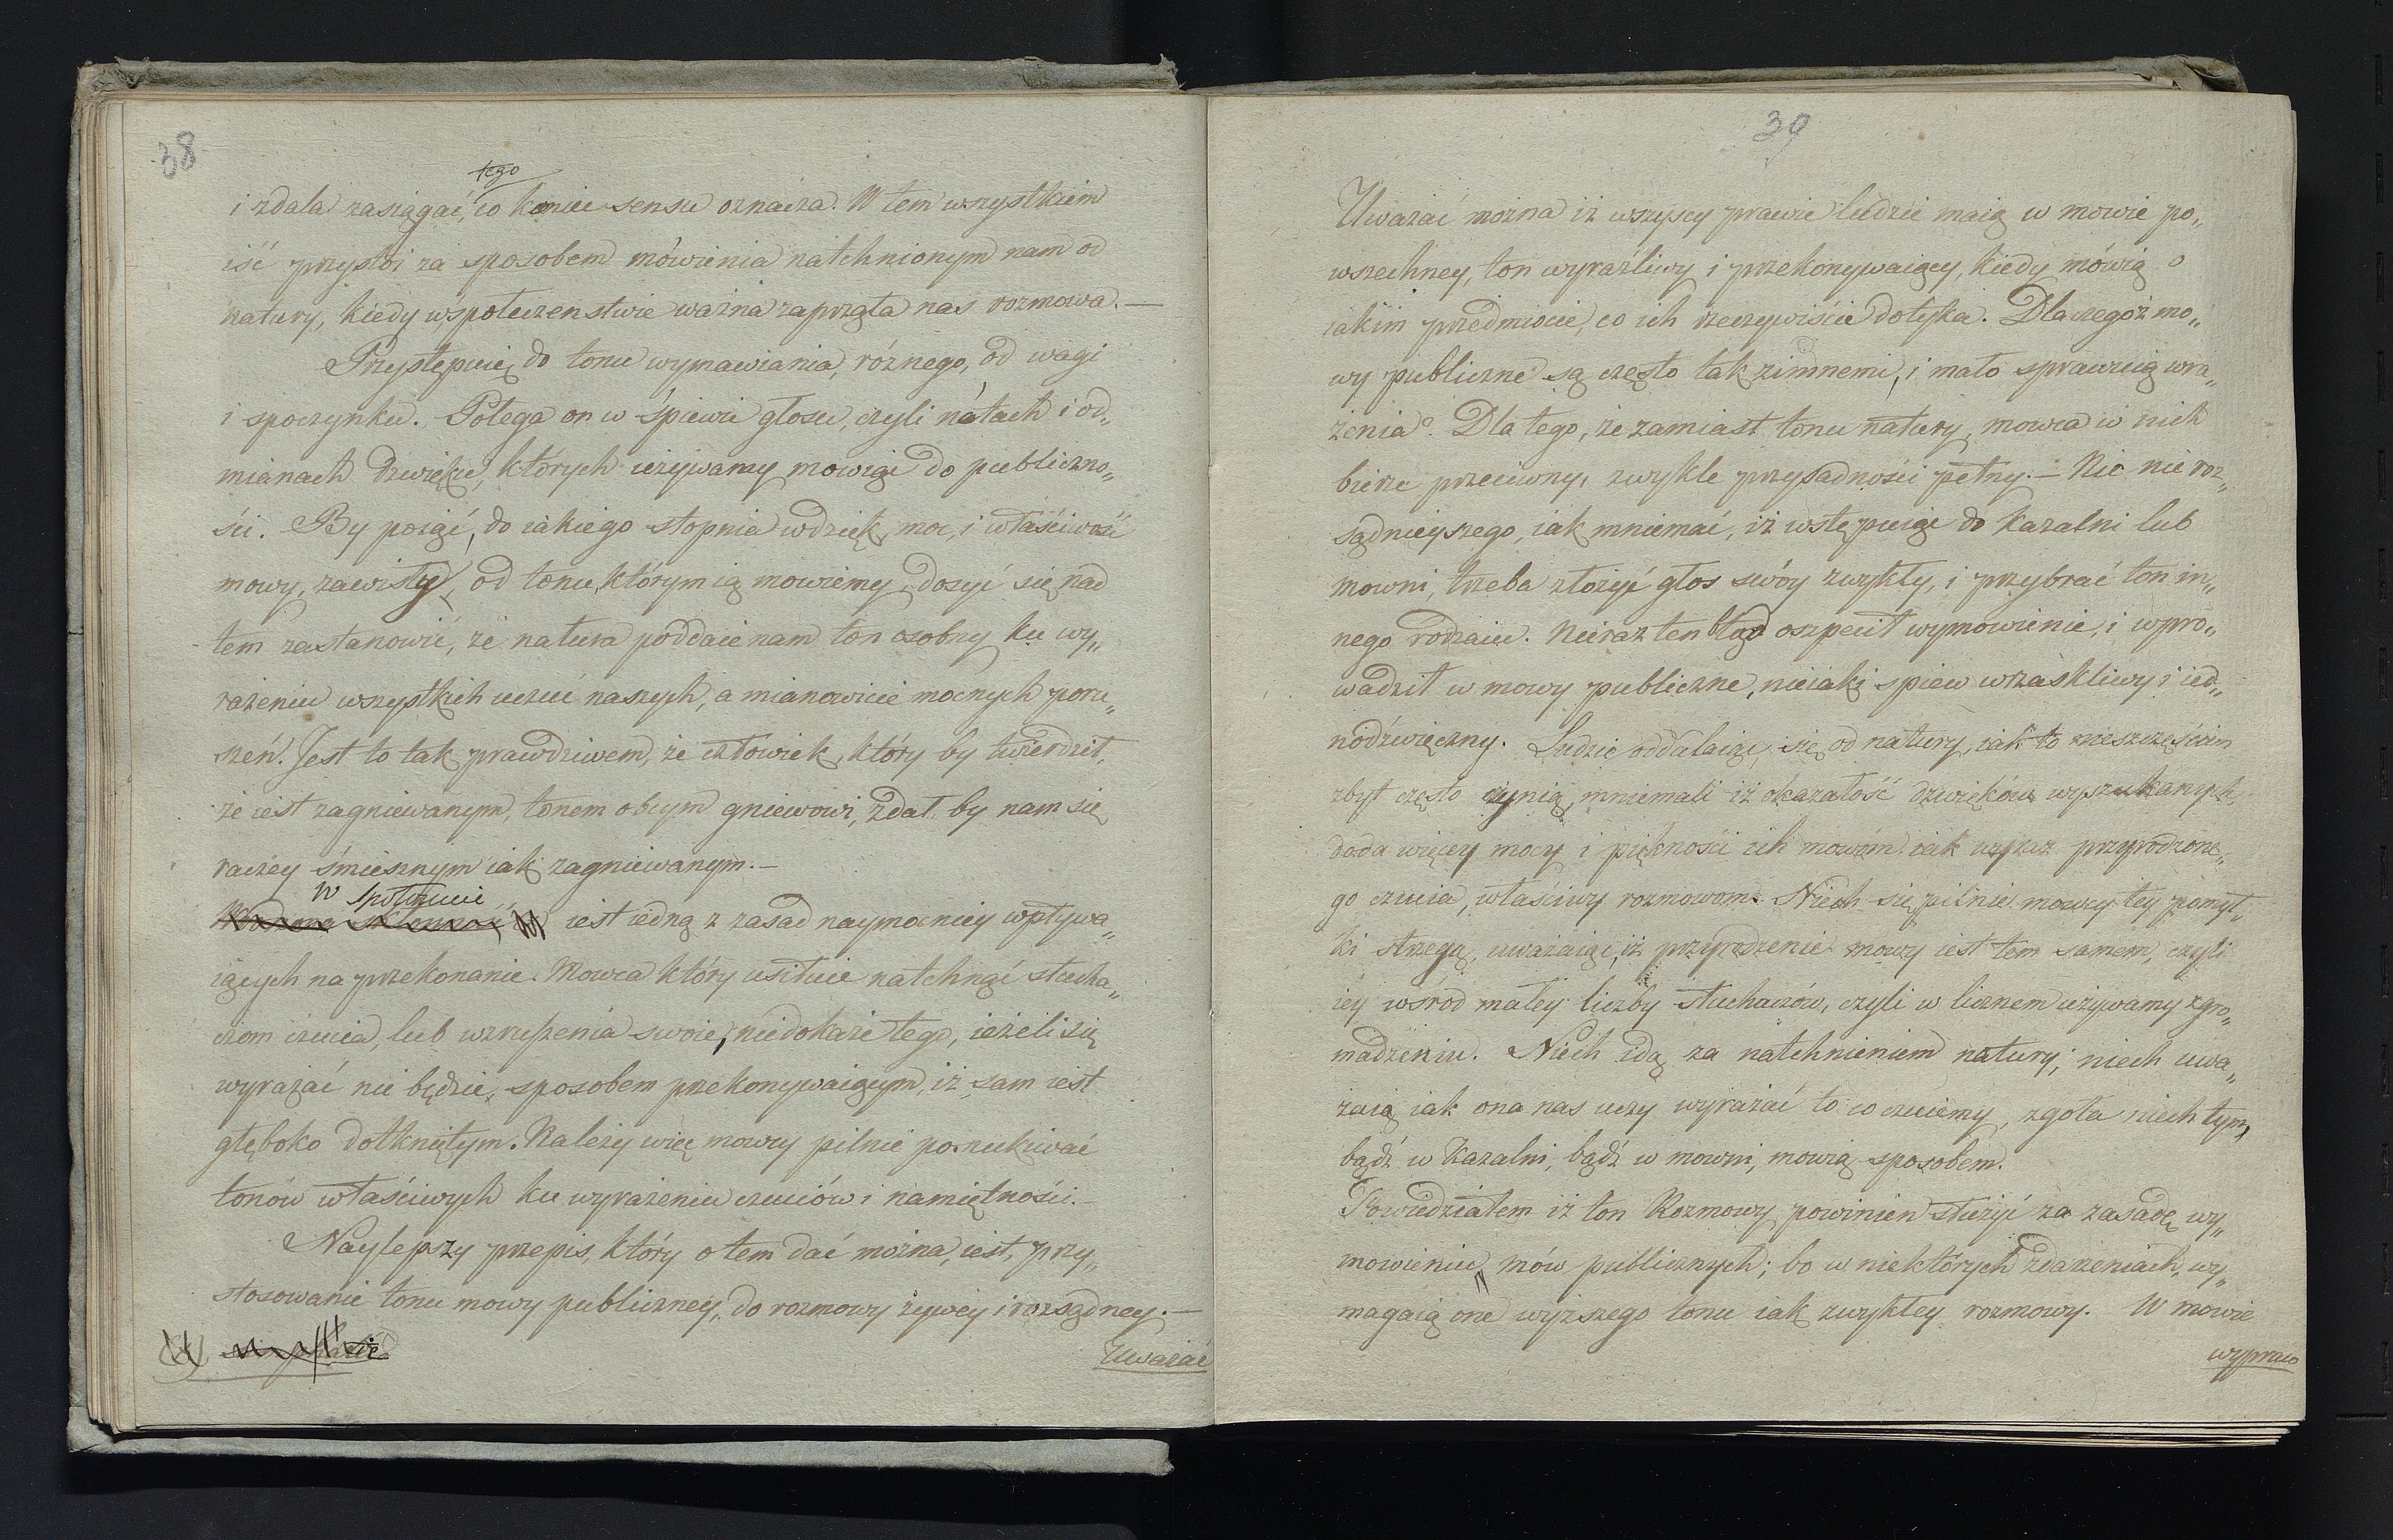 38
tego
i zdala zasiągać, co koniec sensu oznacza. W tém wszystkiem
iść przystoi za sposobem mówienia natchnionym nam od
natury, kiedy wspołeczenstwie ważna zaprząta nas rozmowa.—
Przystępuię do tonu wymawiania, różnego, od wagi
i spoczynku. Polega on w śpiewie głosu, czyli nótach i od„
mianach dzwięku, których używamy mowiąc do publiczno„
ści. By poiąć, do iakiego stopnia wdzięk, moc, i właściwość
mowy, zawisły, od tonu, którym ią mowiemy, dosyć się nad
tem zastanowić, że natura poddaie nam ton osobny ku wy„
rażeniu wszystkich uczuć naszych, a mianowicie mocnych poru„
szeń. Jest to tak prawdziwem, że człowiek, który by twierdził,
że iest zagniewanym, tonem obcym gniewowi, zdał by nam się
raczey śmiesznym iak zagniewanym.—
W spółczucie
iest iedną z zasad naymocniey wpływa„
iących na przekonanie. Mowca który usiłuie natchnąć słucha„
czom czucia, lub wzruszenia swoie, niedokaże tego, ieżeli się
wyrażać nie będzie, sposobem przekonywaiącym, iż sam iest
głęboko dotkniętym. Należy więc mowcy pilnie poszukiwać
tonów właściwych ku wyrażeniu czuciów i namiętności.—
Naylepszy przepis, który o tem dać można, iest, przy„
stosowanie tonu mowy publiczney, do rozmowy żywey i rozsądney.—
Uważać
39
Uważać można iż wszyscy prawie ludzie maią w mowie po„
wszechney, ton wyraźliwy i przekonywaiący, kiedy mówią o
iakim przedmiocie, co ich rzeczywiście dotyka. Dlaczegoż mo„
wy publiczne są często tak zimnemi, i mało sprawuią wra„
żenia? Dla tego, że zamiast tonu natury, mowca w nich
bierze przeciwny, zwykle przysadności pełny.— Nic nie roz„
sądnieyszego, iak mniemać, iż wstępuiąc do kazalni lub
mowni, trzeba złożyć głos swóy zwykły, i przybrać ton in„
nego rodzaiu. Nieraz ten błąd oszpecił wymowienie, i wpro„
wadził w mowy publiczne, nieiaki spiew wrzaskliwy i ied„
nodźwięczny. Ludzie oddalaiąc się od natury, iak to nieszczęściem
zbyt często czynią, mniemali iż okazałość dzwięków wyszukanych,
doda więcey mocy i piękności ich mowom iak wyraz przyrodzone„
go czucia, właściwy rozmowom. Niech się pilnie mowcy tey pomył„
ki strzegą, uważaiąc, iż przyrodzenie mowy iest tem samem, czyli
iey wsród małey liczby słuchaczów, czyli w licznem używamy zgro„
madzeniu. Niech idą za natchnieniem natury; niech uwa„
żaią iak ona nas uczy wyrażać to co czuiemy, zgoła niech tym,
bądź w Kazalni, bądź w mowni, mowią sposobem.
Powiedziałem iż ton Rozmowy powinien służyć za zasadę wy„
mowieniu mów publicznych; bo w niektórych zdarzeniach, wy„
magaią one wyższego tonu iak zwykłey rozmowy. W mowie
wypraco